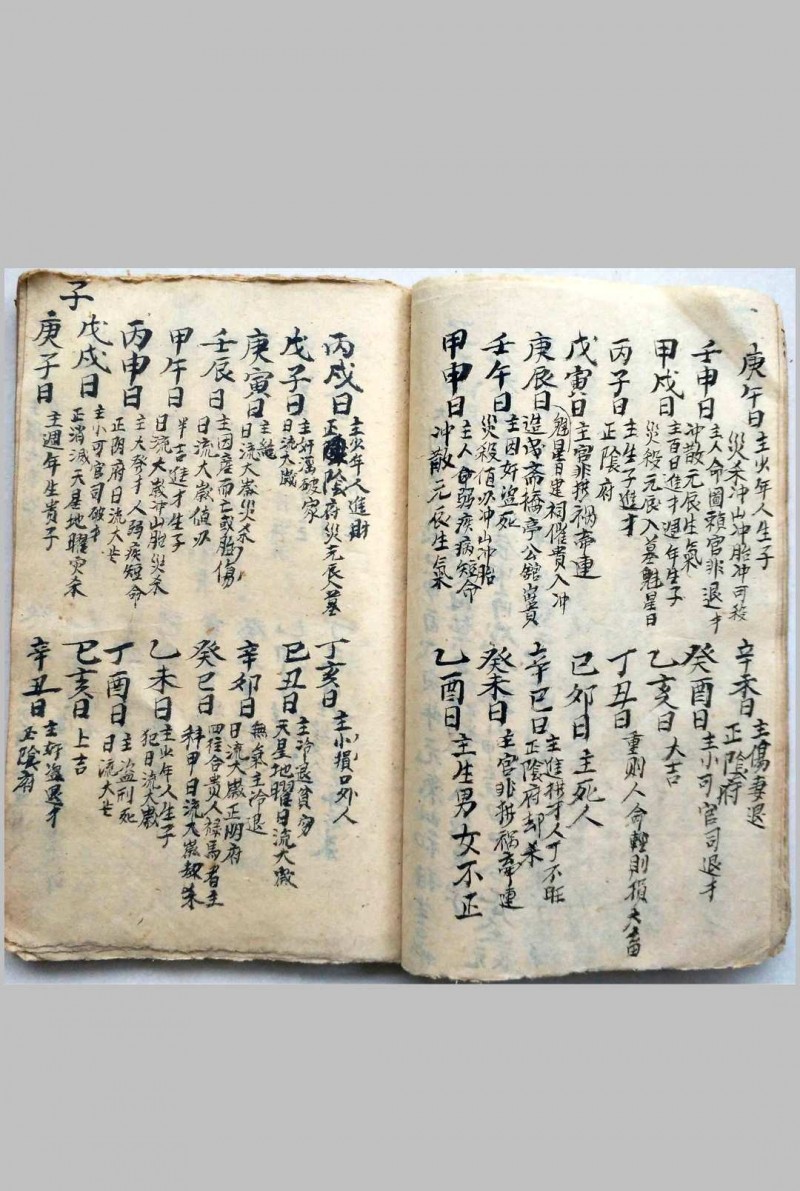 庚午日
主少年人生子
災杀冲山冲胎冲可殺
壬申日
主人命圖賴官非退才
冲散元辰生氣
甲戌日
主百日進才週年生子
災殺元辰入墓魁星日
丙子日
主生子進才
正陰府
戊寅日
主官非拱祸牽連
魁星日建祠催貴入冲
庚辰日
造齋橋亭公舘
主因奸盜死
壬午日
災殺值亦冲山冲胎
甲申日
主人命弱疾病短命
冲散元辰生氣
辛未日
主傷妻退
正陰府
癸酉日
主小可官司退才
乙亥日
大吉
丁丑日
重則人命輕則損六畜
己卯日
主死人
辛巳日
主進拱才人丁不旺
正陰府却杀
癸未日
主官非拱祸牽連
乙酉日
主生男女不正
丙戌日
主少年人進財
正陰府災元辰入墓
戊子日
主奸濕破家
日流大歲
庚寅日
日流大歲災杀
壬辰日
主因産而亡或胎傷
日流大歲值亦
甲午日
半吉進才生子
日流大歲冲山胎災杀
丙申日
主大發才人弱疾短命
正阴府日流大
戊戌日
主小可官司破才
子
庚子日
正消滅天星地曜灾杀
主週年生貴子
丁亥日
主小損口外人
己丑日
主冷退貧窮
天星地曜日流大歲
辛卯日
無氣主冷退
日流大歲正阴府
癸巳日
四柱合貴人禄馬者主
科甲日流大歲却杀
乙未日
主少年人生子
犯日流大歲
丁酉日
主盜刑死
日流大
己亥日
上吉
辛丑日
主奸盜退才
正陰府